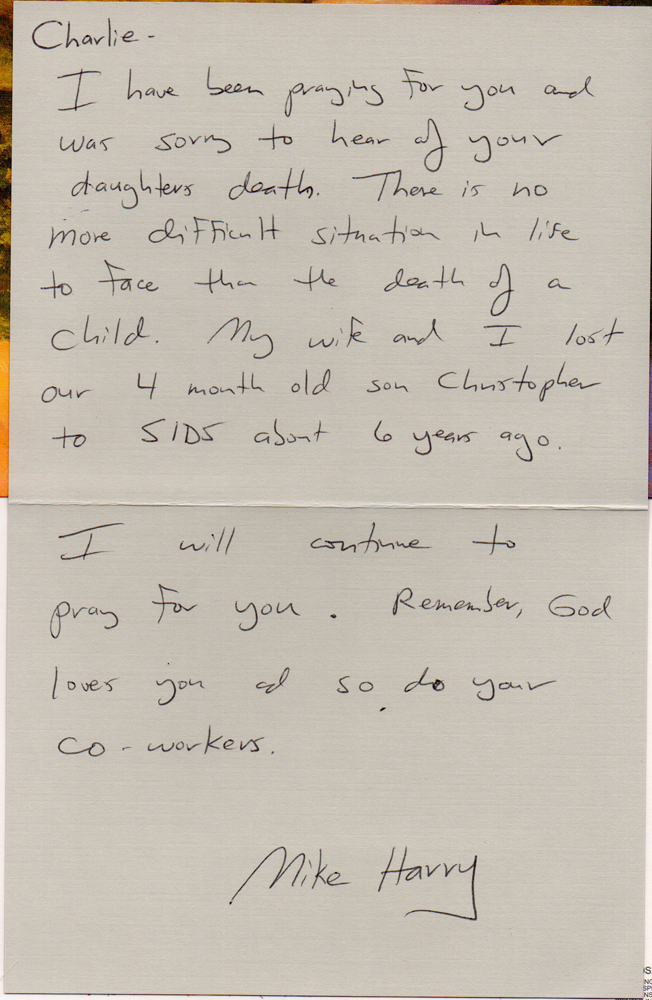 Charlie -
I have been praying for you and
was sorry to hear of your
daughters death. There is no
more difficult situation in life
to face than the death of a
child. My wife and I lost
our 4 month old son Christopher
to SIDS about 6 years ago.
I will continue to
pray for you. Remember, God
loves you ad so do your
co-workers.
Mike Harry